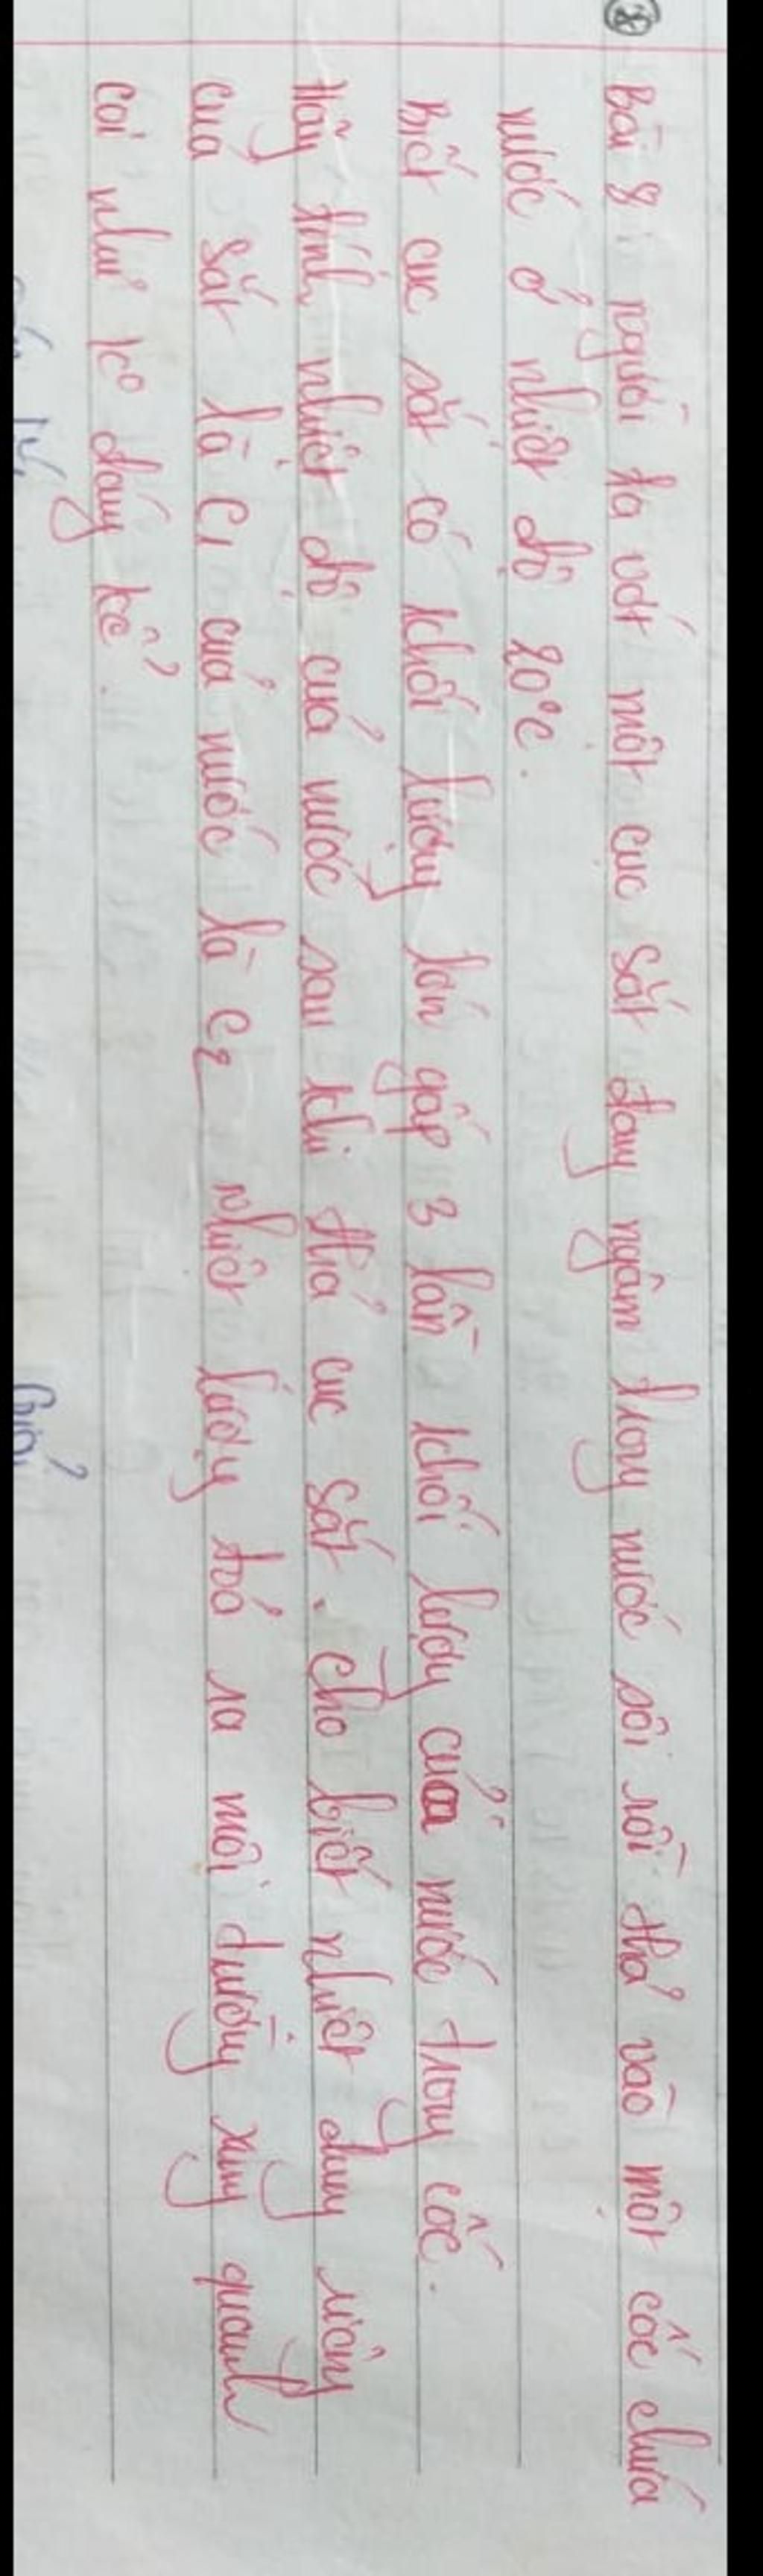 8
Bài 8: người ta vớt một cục sắt đang ngâm trong nước sôi rồi thả vào một cốc chứa
nước ở nhiệt độ 20°c.
Biết cục sắt có khối lượng lớn gấp 3 lần khối lượng của nước trong cốc.
Hãy tính nhiệt độ của nước sau khi thả cục sắt. Cho biết nhiệt dung riêng
của sắt là C1 của nước là C2 nhiệt lượng toả ra môi trường xung quanh
coi như ko đáng kể.